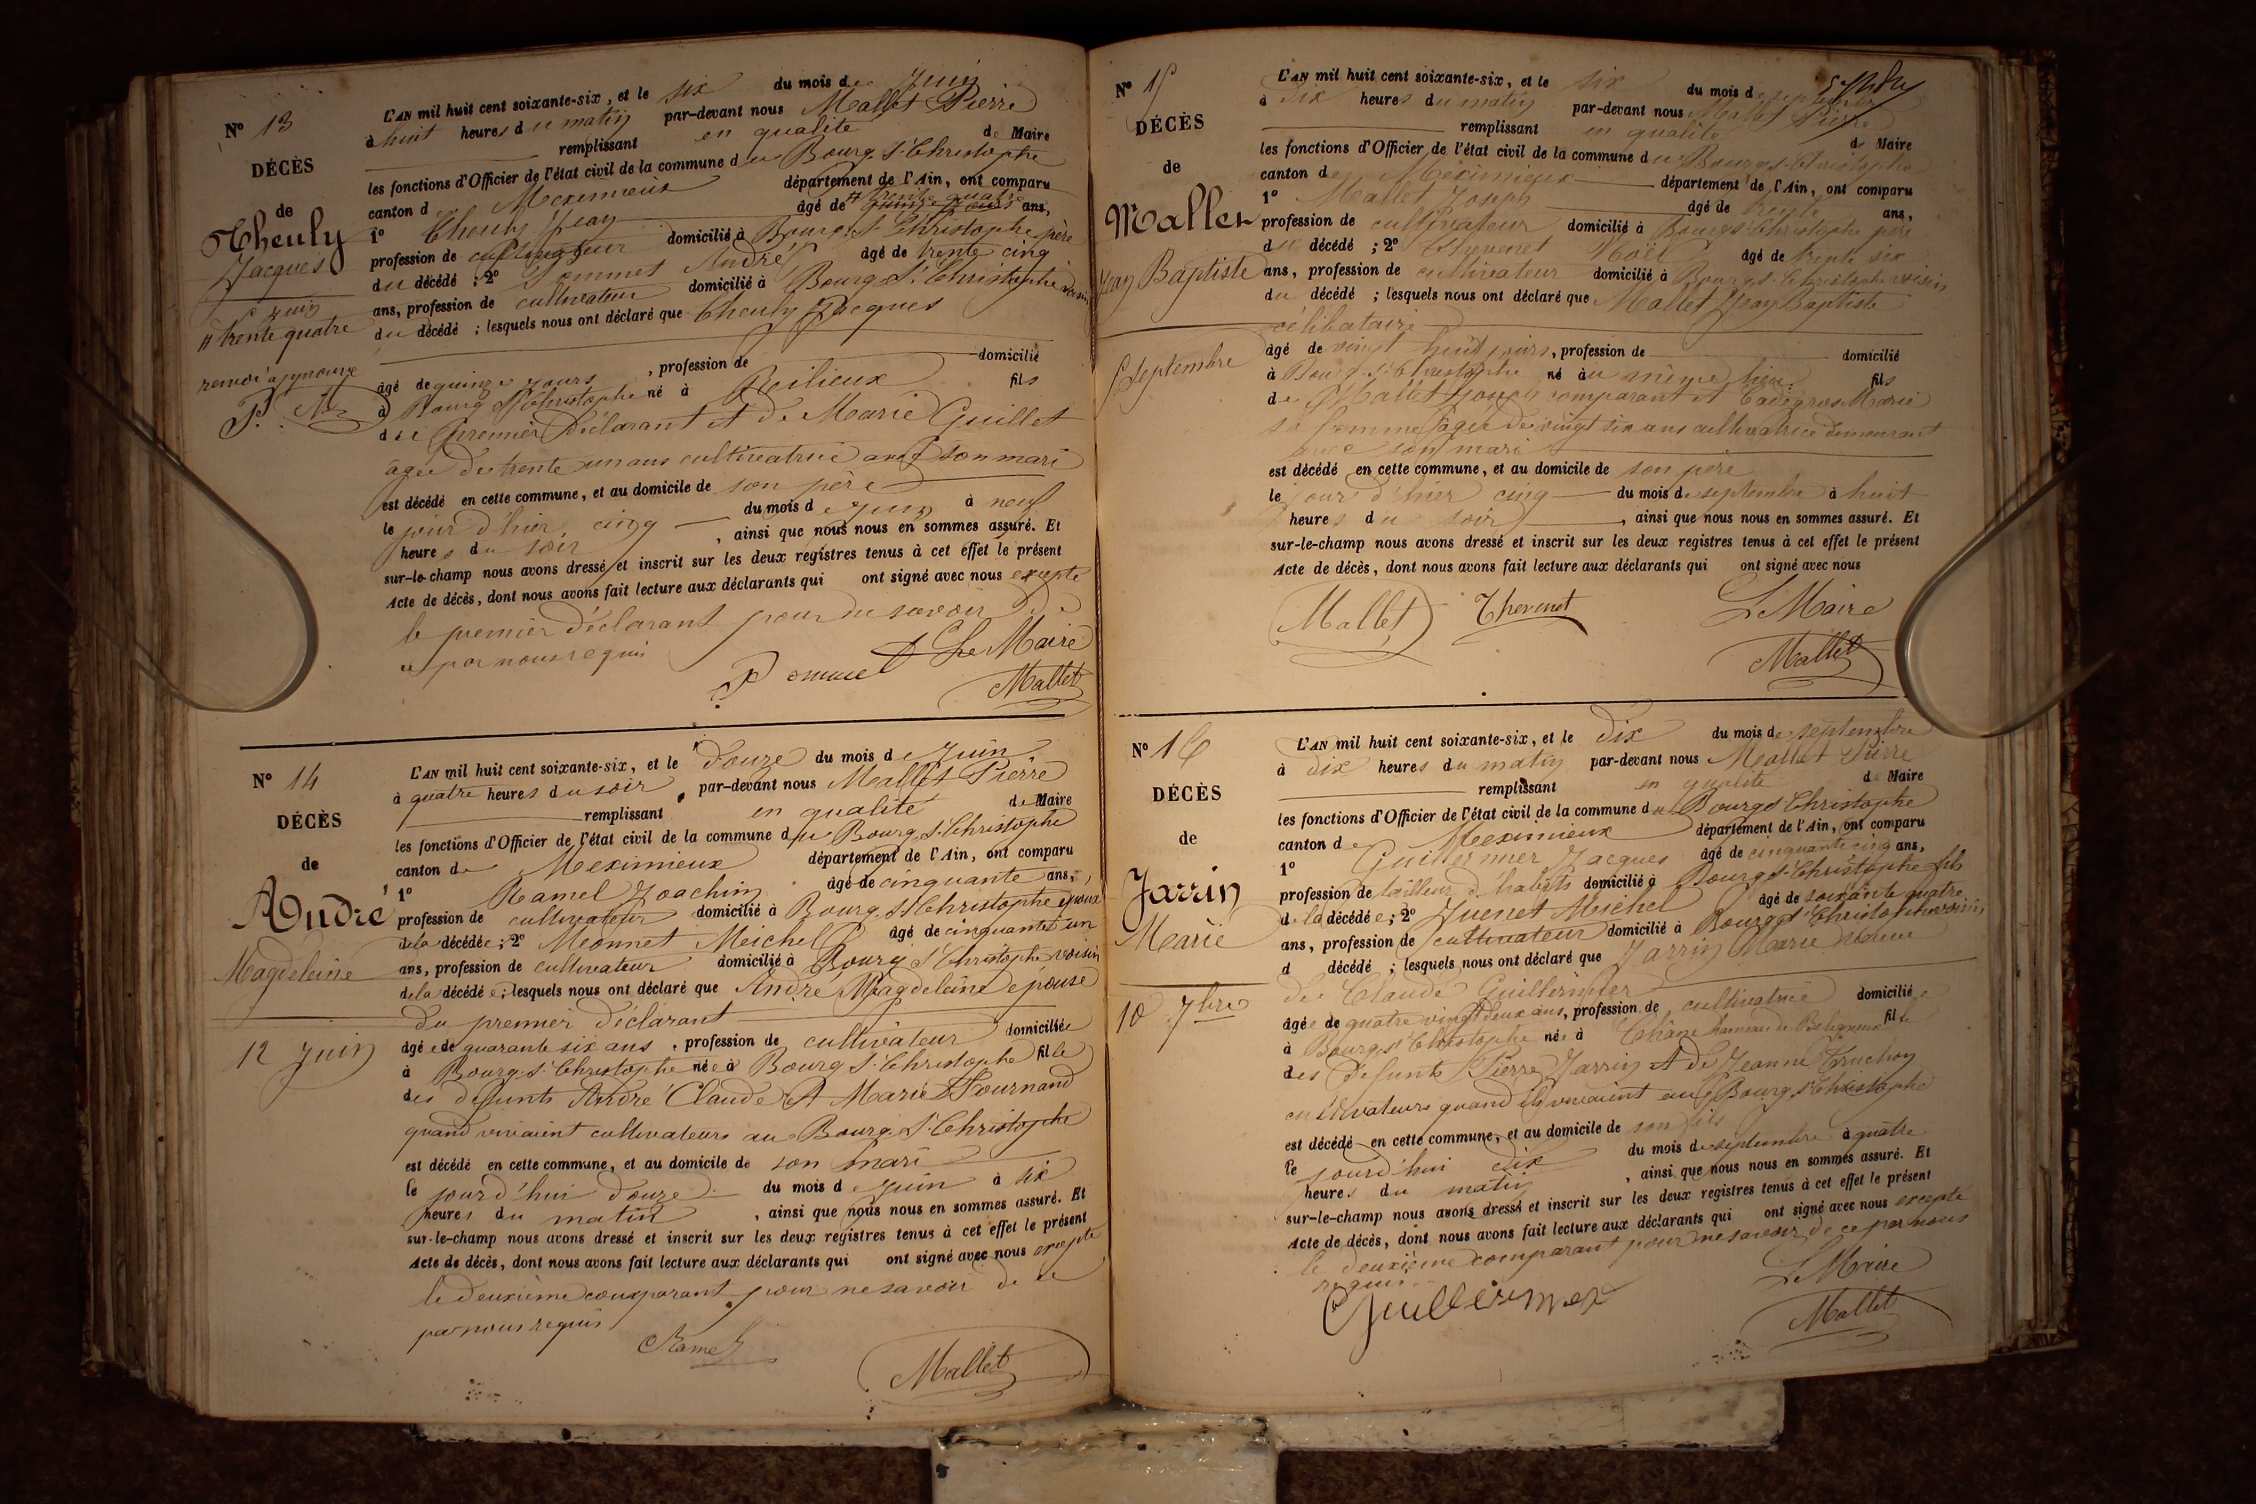 N° 13
DÉCÈS
de
Theuly
Jacques
5 juin
# trente quatre
renvoi approuvé
P. M
L'AN mil huit cent soixante-six, et le six du mois de Juin
à huit heures du matin par-devant nous Mallet Pierre
remplissant en qualité de Maire
les fonctions d'Officier de l'état civil de la commune du Bourg St Christophe
canton de Meximieux département de l'Ain, ont comparu
1° Theuly Jean âgé de # trente quatre ans,
profession de cultivateur domicilié à Bourg St Christophe père
du décédé ; 2° Pommet André âgé de trente cinq
ans, profession de cultivateur domicilié à Bourg St Christophe voisin
du décédé ; lesquels nous ont déclaré que Theuly Jacques
âgé de quinze jours , profession de domicilié
à Bourg St Christophe né à Rilieux fils
du premier déclarant et de Marie Guillet
agée de trente un ans cultivatrice avec son mari
est décédé en cette commune, et au domicile de son père
le jour d'hier cinq du mois de juin à neuf
heures du soir , ainsi que nous nous en sommes assuré. Et
sur-le-champ nous avons dressé et inscrit sur les deux registres tenus à cet effet le présent
Acte de décès, dont nous avons fait lecture aux déclarants qui ont signé avec nous excepté
le premier déclarant pour ne savoir de
ce par nous requis
Le Maire
Mallet
N° 14
DÉCÈS
de
André
Magdeleine
12 Juin
L'AN mil huit cent soixante-six, et le douze du mois de Juin
à quatre heures du soir par-devant nous Mallet Pierre
remplissant en qualité de Maire
les fonctions d'Officier de l'état civil de la commune du Bourg St Christophe
canton de Meximieux département de l'Ain, ont comparu
1° Ramel Joachim âgé de cinquante ans,
profession de cultivateur domicilié à Bourg St Christophe époux
de la décédée ; 2° Meonnet Michel âgé de cinquante un
ans, profession de cultivateur domicilié à Bourg St Christophe voisin
de la décédée ; lesquels nous ont déclaré que André Magdeleine épouse
du premier déclarant
âgée de quarante six ans , profession de cultivateur domiciliée
à Bourg St Christophe née à Bourg St Christophe fille
des defunts André Claude et Marie Tournand
quand vivaient cultivateurs au Bourg St Christophe
est décédé en cette commune, et au domicile de son mari
le jourd'hui douze du mois de juin à six
heures du matin , ainsi que nous nous en sommes assuré. Et
sur-le-champ nous avons dressé et inscrit sur les deux registres tenus à cet effet le présent
Acte de décès, dont nous avons fait lecture aux déclarants qui ont signé avec nous excepté
le deuxième comparant pour ne savoir de ce
par nous requis
Ramel
Mallet
N° 15
DÉCÈS
de
Mallet
Jean Baptiste
5 Septembre
L'AN mil huit cent soixante-six, et le six du mois de septembre
à dix heures du matin par-devant nous Mallet Pierre
remplissant en qualité de Maire
les fonctions d'Officier de l'état civil de la commune du Bourg St Christophe
canton de Meximieux département de l'Ain, ont comparu
1° Mallet Joseph âgé de trente ans,
profession de cultivateur domicilié à Bourg St Christophe père
du décédé ; 2° Thevenet Noël âgé de trente six
ans, profession de cultivateur domicilié à Bourg St Christophe voisin
du décédé ; lesquels nous ont déclaré que Mallet Jean Baptiste
célibataire
âgé de vingt huit jours, profession de domicilié
à Bourg St Christophe né au même lieu fils
de Mallet Joseph comparant et Cadegros Marie
sa femme agée de vingt six ans cultivatrice demeurant
avec son mari
est décédé en cette commune, et au domicile de son père
le jour d'hier cinq du mois de septembre à huit
heures du soir , ainsi que nous nous en sommes assuré. Et
sur-le-champ nous avons dressé et inscrit sur les deux registres tenus à cet effet le présent
Acte de décès, dont nous avons fait lecture aux déclarants qui ont signé avec nous
Mallet Thevenet Le Maire
Mallet
N° 16
DÉCÈS
de
Jarrin
Marie
10 7bre
L'AN mil huit cent soixante-six, et le dix du mois de septembre
à dix heures du matin par-devant nous Mallet Pierre
remplissant en qualité de Maire
les fonctions d'Officier de l'état civil de la commune du Bourg St Christophe
canton de Meximieux département de l'Ain, ont comparu
1° Guillermier Jacques âgé de cinquante cinq ans,
profession de tailleur d'habits domicilié à Bourg St Christophe fils
de la décédée ; 2° Juenet Michel âgé de soixante quatre
ans, profession de cultivateur domicilié à Bourg St Christophe voisin
d décédé ; lesquels nous ont déclaré que Jarrin Marie veuve
de Claude Guillermier
âgée de quatre vingt deux ans, profession de cultivatrice domiciliée
à Bourg St Christophe née à Chane hameau de Beligneux fille
des defunts Pierre Jarrin et de Jeanne Truchon
cultivateurs quand ils vivaient au Bourg St Christophe
est décédé en cette commune, et au domicile de son fils
le jourd'hui dix du mois de septembre à quatre
heures du matin , ainsi que nous nous en sommes assuré. Et
sur-le-champ nous avons dressé et inscrit sur les deux registres tenus à cet effet le présent
Acte de décès, dont nous avons fait lecture aux déclarants qui ont signé avec nous excepté
le deuxième comparant pour ne savoir de ce par nous
requis
Guillermier
Le Maire
Mallet